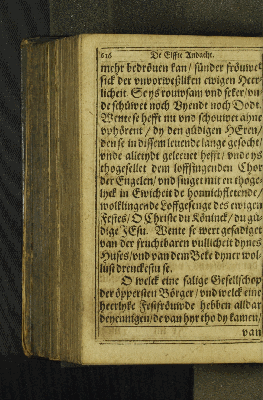 616 De Elffte Andacht.
mehr bedröuen kan / sünder fröuwet
sick der vnvorweßliken ewigen Herr-
licheit. Se ys rouwsam vnd seker / vn
de schüwet noch Vyendt noch Dodt.
Wente se hefft nu vnd schouwet ahne
vphörent / dy den güdigen HEren /
den se in dissem leuende lange gesocht /
vnde alletydt geleeuet hefft / vnde ys
thogesellet dem loffsingenden Chor
der Engelen / vnd singet mit en thoge-
lyck in Ewicheit de honnichfletende /
wolklingende Loffgesenge des ewigen
Festes / O Christe du Köninck / du gü-
dige JEsu. Wente se wert gesadiget
van der fruchtbaren vullicheit dynes
Huses / vnd van dem Beke dyner wol-
lust drenckestu se.
O welck eine salige Gesellschop
der öppersten Börger / vnd welck eine
heerlyke Festfröuwde hebben alldar
deyennigen / de van hyr tho dy kamen /
van